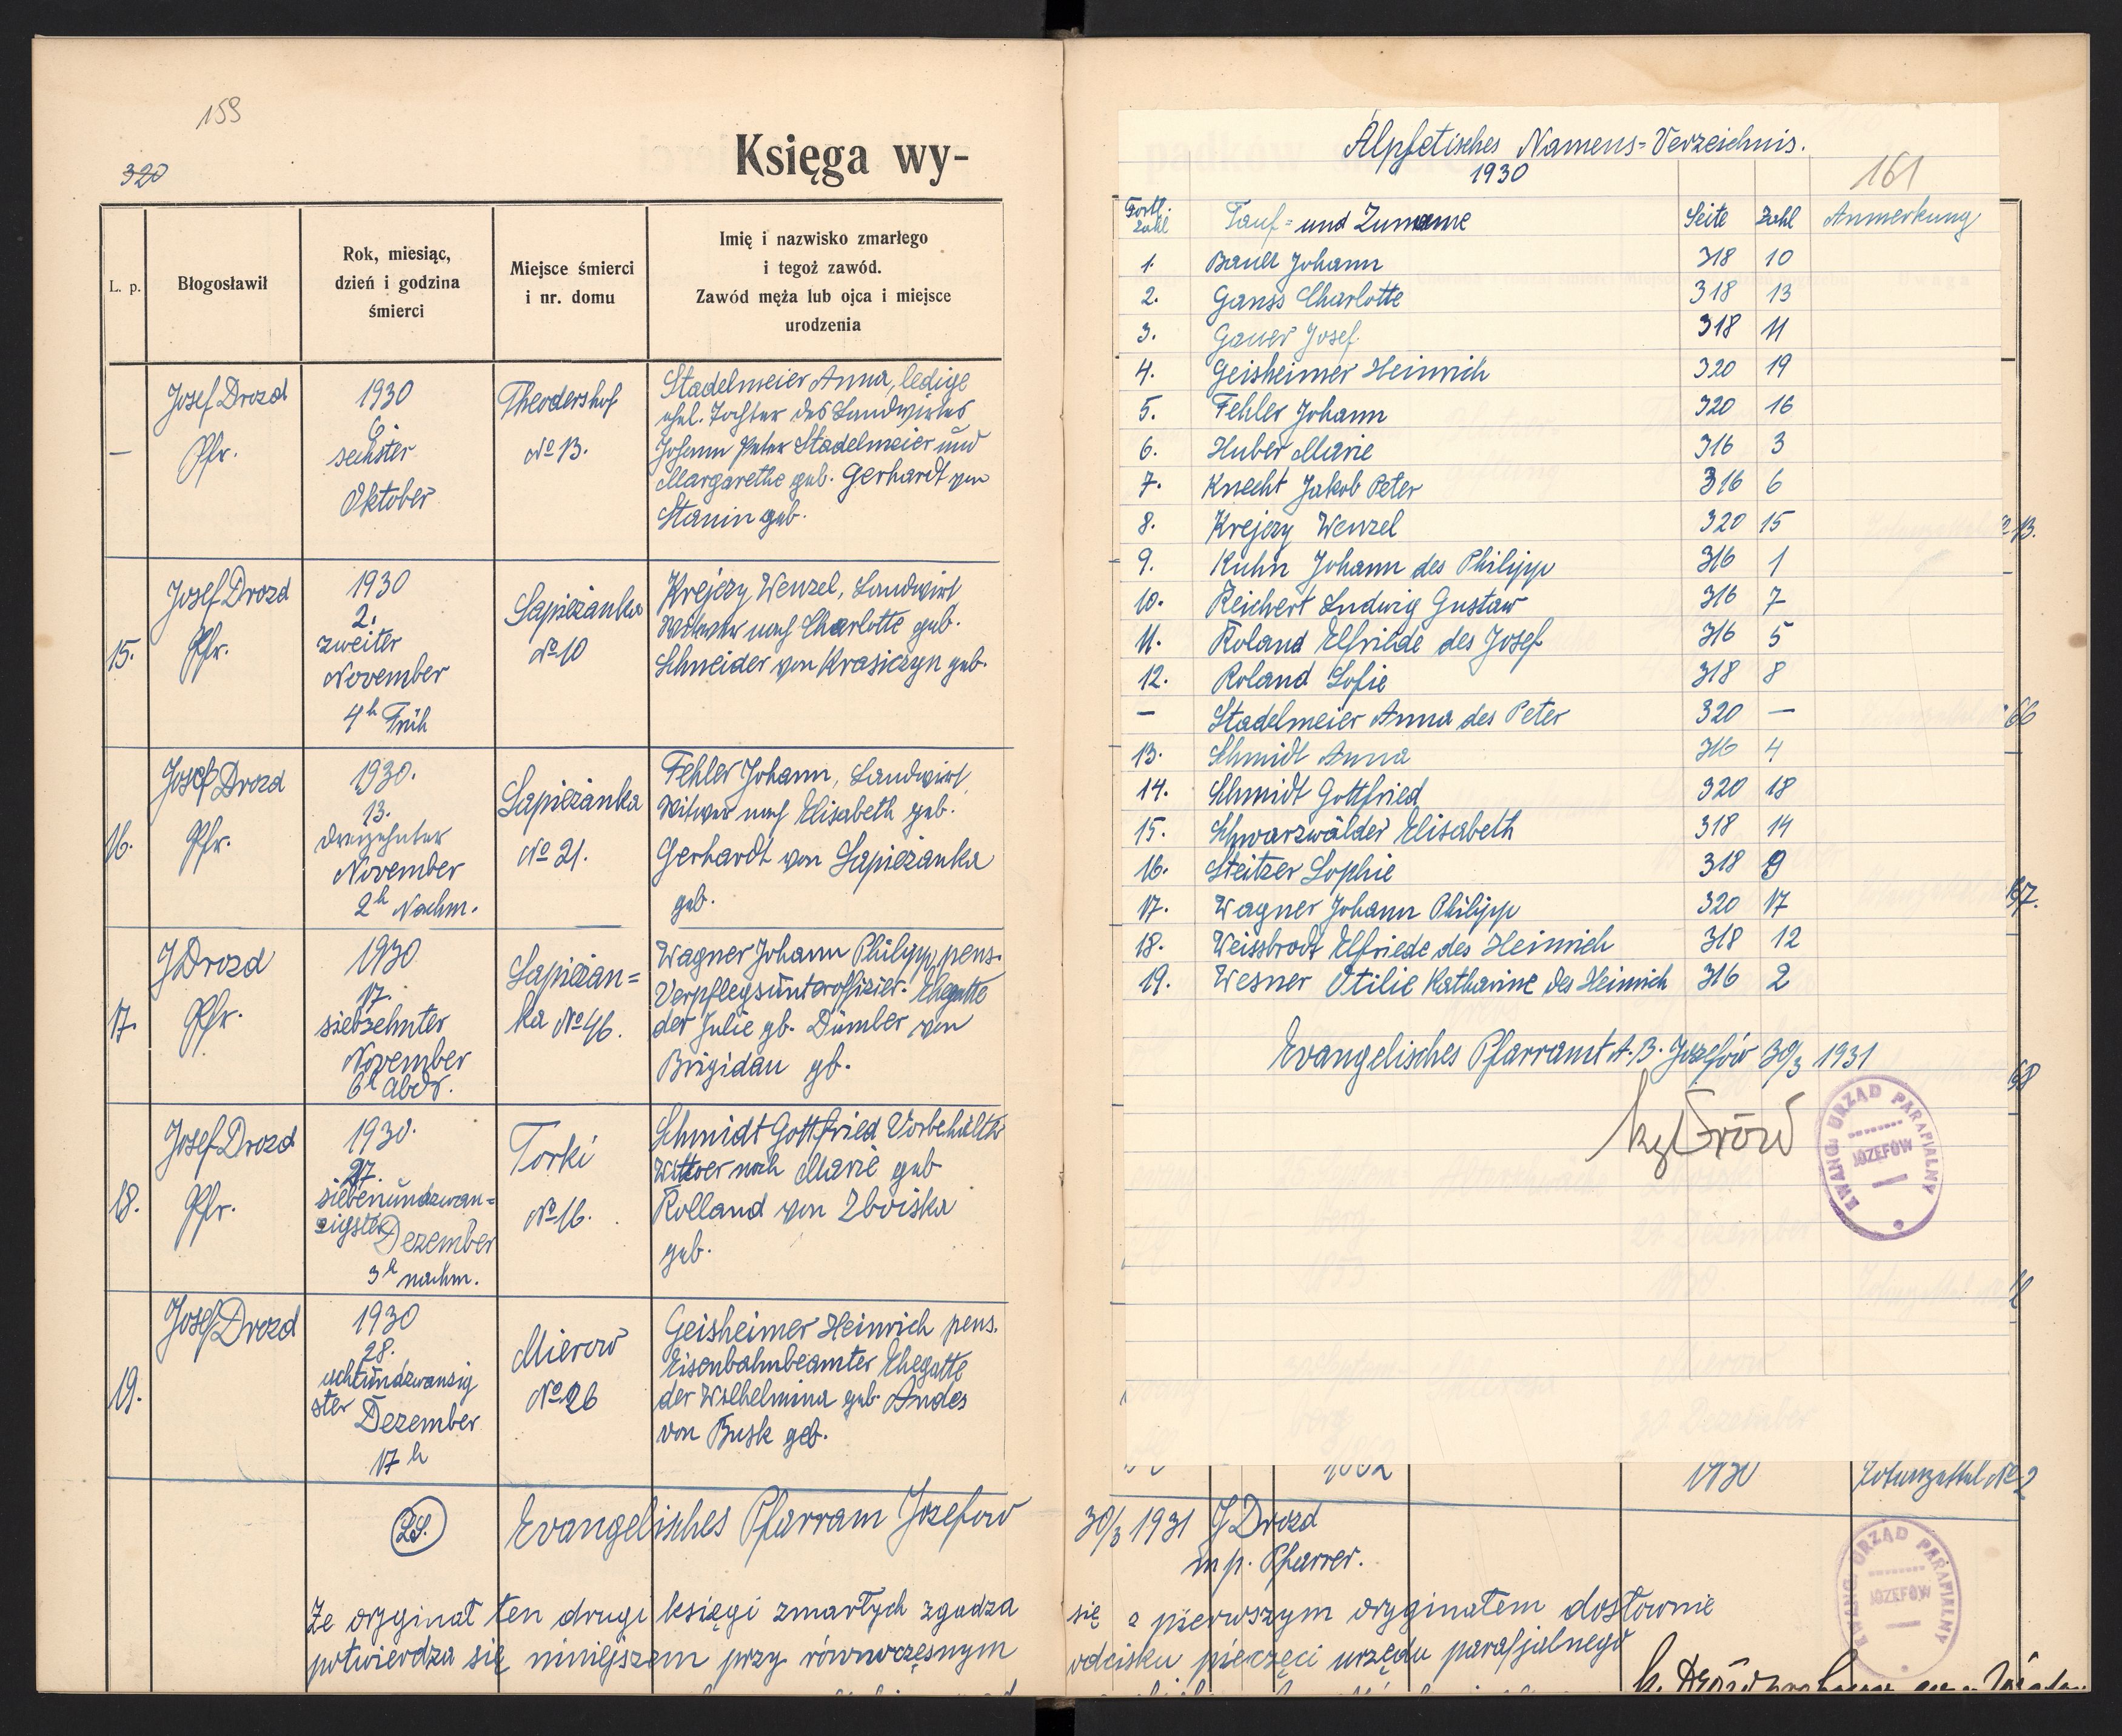 159
320
Księga wy-
L. p.
Błogosławił
Rok, miesiąc,
dzień i godzina
śmierci
Miejsce śmierci
i nr. domu
Imię i nazwisko zmarłego
i tegoż zawód.
Zawód męża lub ojca i miejsce
urodzenia
—
Josef Drozd
Pfr.
1930
6.
sechster
Oktober
Theodershof
№ 13.
Stadelmeier Anna, ledige
ehel. Tochter des Landwirtes
Johann Peter Stadelmeier und
Margarethe geb. Gerhardt von
Stanin geb.
15.
Josef Drozd
Pfr.
1930
2.
zweiter
November
4h Früh
Sapieżanka
№ 10
Krejczy Wenzel, Landwirt
Witwer nach Charlotte geb.
Schneider von Krasiczyn geb.
16.
Josef Drozd
Pfr.
1930.
13.
dreizehnter
November
2h Nachm.
Sapieżanka
№ 21.
Fehler Johann, Landwirt,
Witwer nach Elisabeth geb.
Gerhardt von Sapieżanka
geb.
17.
J Drozd
Pfr.
1930
17.
siebzehnter
November
6h Abds.
Sapieżan=
ka № 46.
Wagner Johann Philipp, pens.
Verpflegsunteroffizier. Ehegatte
der Julie gb. Dümler von
Brigidau gb.
18.
Josef Drozd
Pfr.
1930.
27.
siebenundzwan=
zigster Dezember
3h nachm.
Torki
№ 16.
Schmidt Gottfried Vorbehältler
Wittwer nach Marie geb
Rolland von Zboiska
geb.
19.
Josef Drozd
1930
28.
achtundzwanzig
ster Dezember
17 h
Mierów
№ 26
Geisheimer Heinrich pens.
Eisenbahnbeamter Ehegatte
der Wilhelmina geb. Andes
von Busk geb.
Evangelisches Pfarram Jozefow 30/3 1931 J Drozd
mp. Pfarrer.
Że oryginał ten drugi księgi zmarłych zgadza się z pierwszym oryginałem dosłownie
potwierdza się niniejszem przy równoczesnym odcisku pieczęci urzędu parafjalnego
Alpfetisches Namens-Verzeichnis.
1930
161
Fortl. Zahl
Tauf- und Zuname
Seite
Zahl
Anmerkung
1. Bauer Johann 318 10
2. Ganss Charlotte 318 13
3. Gauer Josef 318 11
4. Geisheimer Heinrich 320 19
5. Fehler Johann 320 16
6. Huber Marie 316 3
7. Knecht Jakob Peter 316 6
8. Krejczy Wenzel 320 15
9. Kuhn Johann des Philipp 316 1
10. Reichert Ludwig Gustaw 316 7
11. Roland Elfriede des Josef 316 5
12. Roland Sofie 318 8
— Stadelmeier Anna des Peter 320 —
13. Schmidt Anna 316 4
14. Schmidt Gottfried 320 18
15. Schwarzwälder Elisabeth 318 14
16. Steitzer Sophie 318 9
17. Wagner Johann Philipp 320 17
18. Weissbrodt Elfriede des Heinrich 318 12
19. Wesner Otilie Katharine des Heinrich 316 2
Evangelisches Pfarramt A. B. Jozefów 30/3 1931
EWANG. URZĄD PARAFIALNY
JÓZEFÓW
66
67.
68
1930
Totenzettel № 2
EWANG. URZĄD PARAFIALNY
JÓZEFÓW